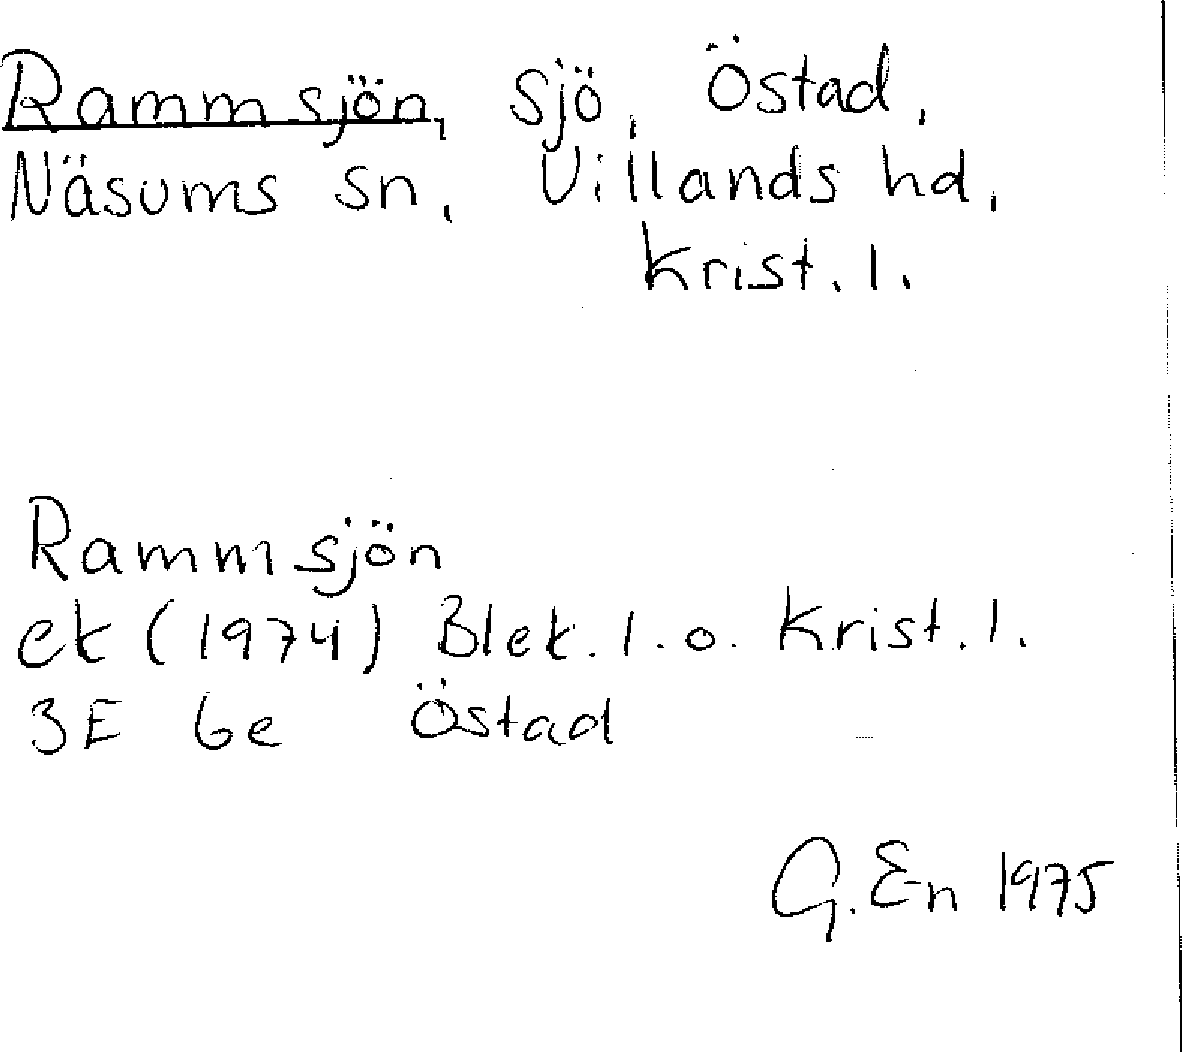 Rammsjön, sjö, Östad,
Näsums sn, Villands hd,
Krist. l.
Rammsjön
ek (1974) Blek. l. o. Krist. l.
3E 6e Östad
G. En 1975